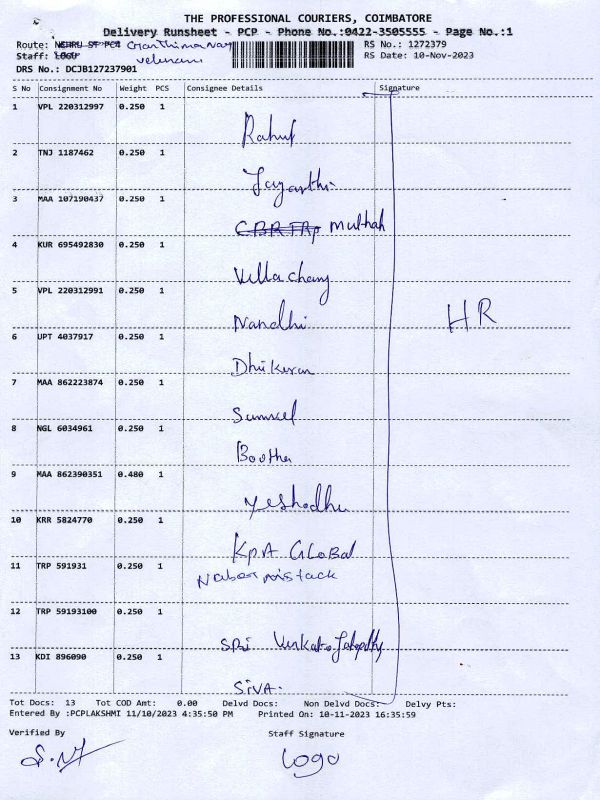 THE PROFESSIONAL COURIERS, COIMBATORE
Delivery Runsheet - PCP - Phone No.:0422-3505555 - Page No.:1
Route: RS No.: 1272379
Staff: RS Date: 10-Nov-2023
DRS No.: DCJB127237901
S No Consignment No Weight PCS Consignee Details Signature
1 VPL 220312997 0.250 1
Rahul
2 TNJ 1187462 0.250 1
Jayanthi
3 MAA 107190437 0.250 1
Muthah
4 KUR 695492830 0.250 1
Vella chamy
5 VPL 220312991 0.250 1
Nandhi HR
6 UPT 4037917 0.250 1
Dhikaran
7 MAA 862223874 0.250 1
Samuel
8 NGL 6034961 0.250 1
Bootha
9 MAA 862390351 0.480 1
Yeshodhu
10 KRR 5824770 0.250 1
KPA GLOBAL
11 TRP 591931 0.250 1
mistack
12 TRP 59193100 0.250 1
SRI
13 KDI 896090 0.250 1
SIVA.
Tot Docs: 13 Tot COD Amt: 0.00 Delvd Docs: Non Delvd Docs: Delvy Pts:
Entered By :PCPLAKSHMI 11/10/2023 4:35:50 PM Printed On: 10-11-2023 16:35:59
Verified By Staff Signature
Logu